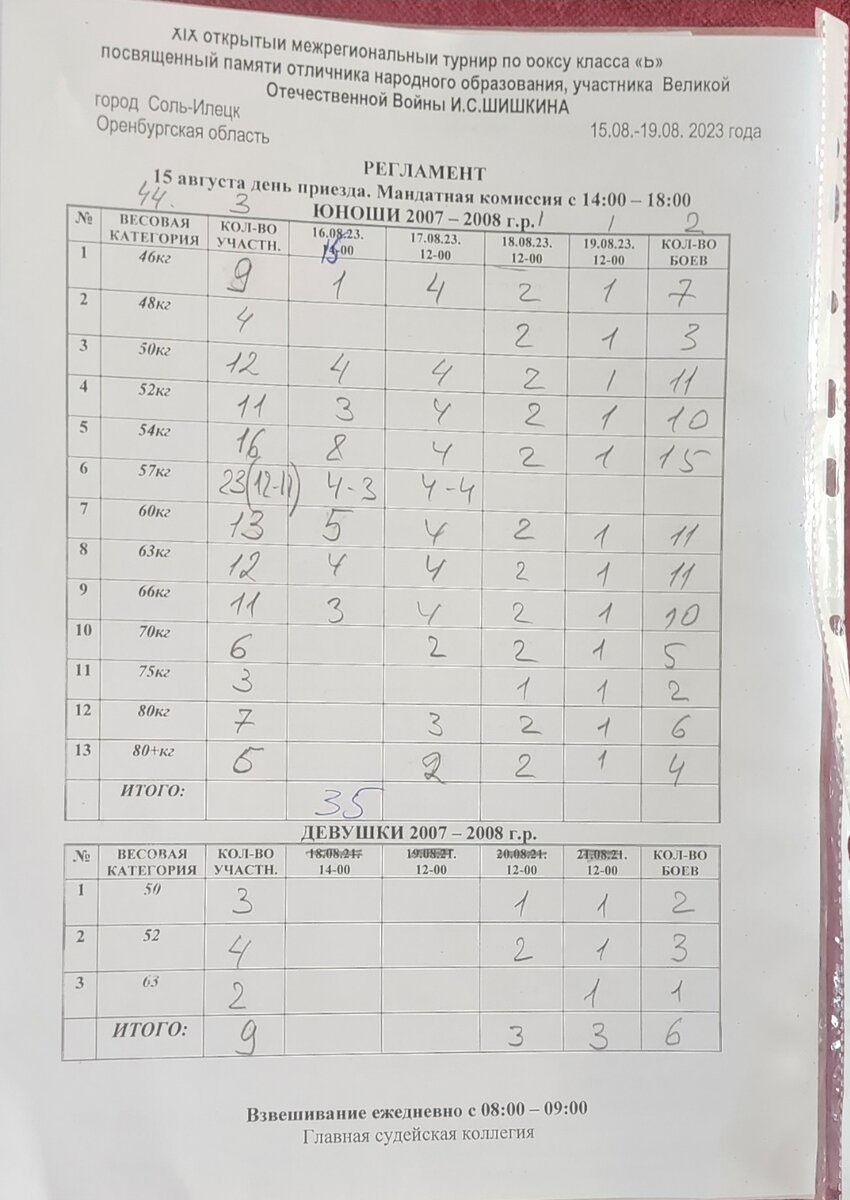 XIX открытый межрегиональный турнир по боксу класса «Б»
посвященный памяти отличника народного образования, участника Великой
Отечественной Войны И.С.ШИШКИНА
город Соль-Илецк
Оренбургская область 15.08.-19.08. 2023 года
РЕГЛАМЕНТ
15 августа день приезда. Мандатная комиссия с 14:00 – 18:00
ЮНОШИ 2007 – 2008 г.р.
44. 3 1 1 2
№ ВЕСОВАЯ КАТЕГОРИЯ КОЛ-ВО УЧАСТН. 16.08.23. 15-00 17.08.23. 12-00 18.08.23. 12-00 19.08.23. 12-00 КОЛ-ВО БОЕВ
1 46кг 9 1 4 2 1 7
2 48кг 4 2 1 3
3 50кг 12 4 4 2 1 11
4 52кг 11 3 4 2 1 10
5 54кг 16 8 4 2 1 15
6 57кг 23(12-11) 4-3 4-4
7 60кг 13 5 4 2 1 11
8 63кг 12 4 4 2 1 11
9 66кг 11 3 4 2 1 10
10 70кг 6 2 2 1 5
11 75кг 3 1 1 2
12 80кг 7 3 2 1 6
13 80+кг 5 2 2 1 4
ИТОГО: 35
ДЕВУШКИ 2007 – 2008 г.р.
№ ВЕСОВАЯ КАТЕГОРИЯ КОЛ-ВО УЧАСТН. 18.08.21. 14-00 19.08.21. 12-00 20.08.21. 12-00 21.08.21. 12-00 КОЛ-ВО БОЕВ
1 50 3 1 1 2
2 52 4 2 1 3
3 63 2 1 1
ИТОГО: 9 3 3 6
Взвешивание ежедневно с 08:00 – 09:00
Главная судейская коллегия